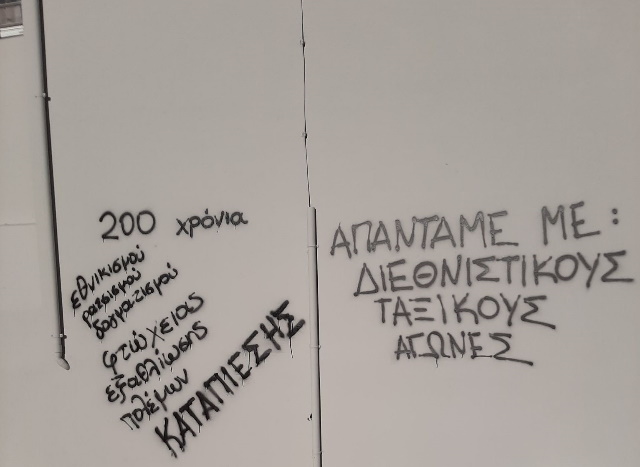 200 χρόνια
εθνικισμού
ρατσισμού
δογματισμού
φτώχειας
εξαθλίωσης
πολέμων
ΚΑΤΑΠΙΕΣΗΣ
ΑΠΑΝΤΑΜΕ ΜΕ:
ΔΙΕΘΝΙΣΤΙΚΟΥΣ
ΤΑΞΙΚΟΥΣ
ΑΓΩΝΕΣ